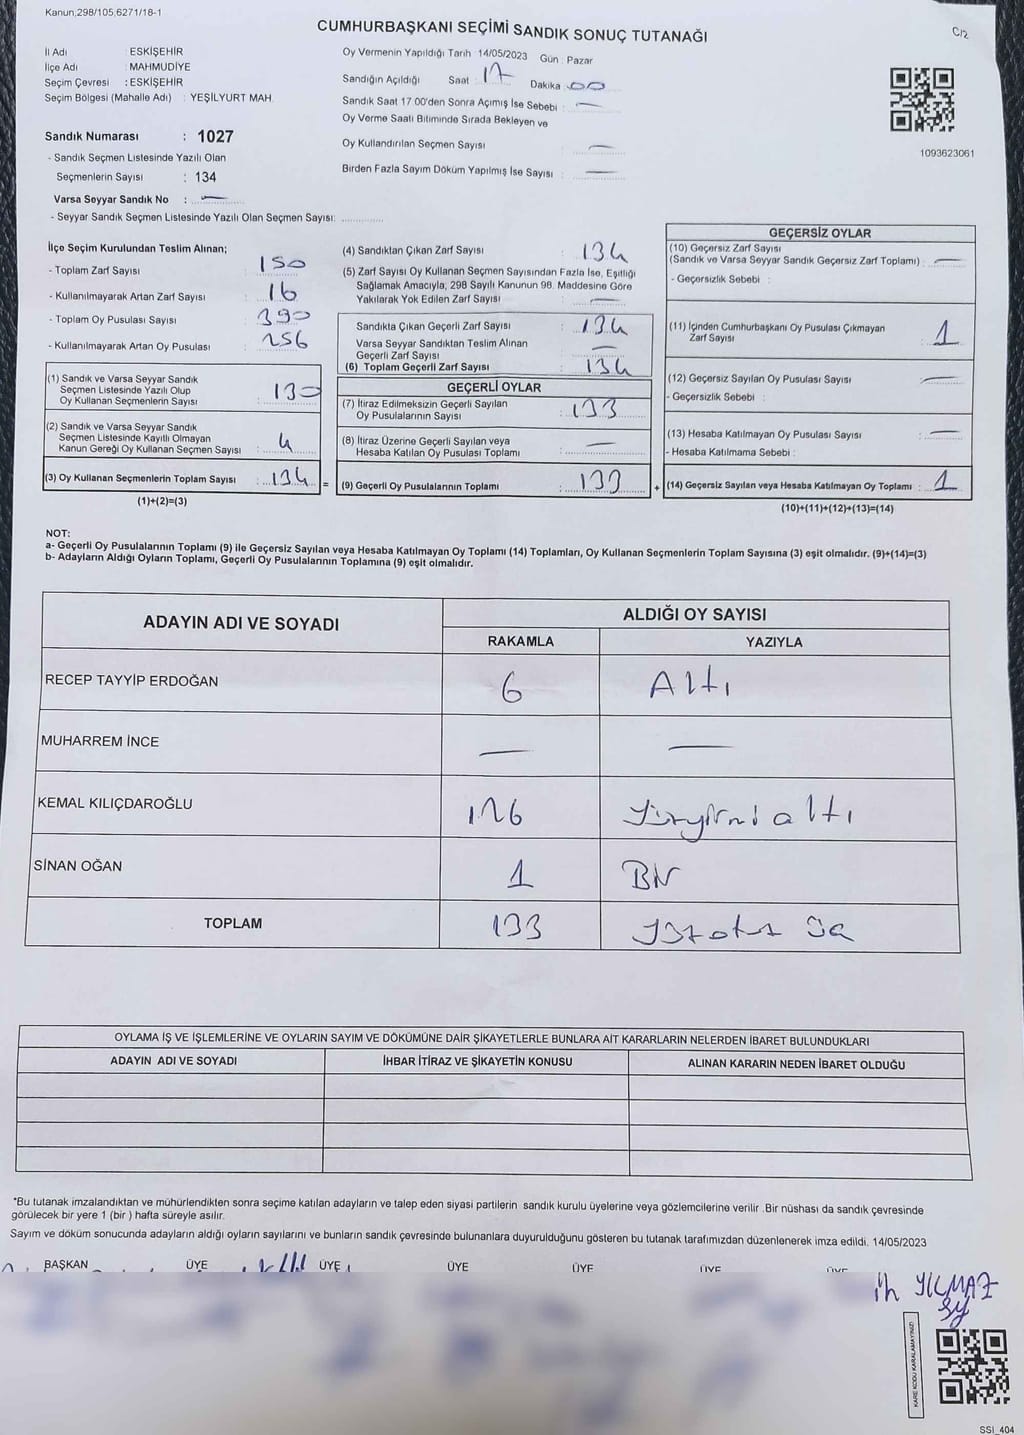 Kanun;298/105,6271/18-1
CUMHURBAŞKANI SEÇİMİ SANDIK SONUÇ TUTANAĞI
C/2
İl Adı : ESKİŞEHİR
İlçe Adı : MAHMUDİYE
Seçim Çevresi : ESKİŞEHİR
Seçim Bölgesi (Mahalle Adı) : YEŞİLYURT MAH.
Oy Vermenin Yapıldığı Tarih 14/05/2023 Gün : Pazar
Sandığın Açıldığı Saat : 17 Dakika : 00
Sandık Saat 17.00'den Sonra Açımış İse Sebebi : —
Oy Verme Saati Bitiminde Sırada Bekleyen ve
Oy Kullandırılan Seçmen Sayısı : —
Birden Fazla Sayım Döküm Yapılmış İse Sayısı : —
1093623061
Sandık Numarası : 1027
- Sandık Seçmen Listesinde Yazılı Olan
Seçmenlerin Sayısı : 134
Varsa Seyyar Sandık No : —
- Seyyar Sandık Seçmen Listesinde Yazılı Olan Seçmen Sayısı:
İlçe Seçim Kurulundan Teslim Alınan;
- Toplam Zarf Sayısı : 150
- Kullanılmayarak Artan Zarf Sayısı : 16
- Toplam Oy Pusulası Sayısı : 390
- Kullanılmayarak Artan Oy Pusulası : 256
(1) Sandık ve Varsa Seyyar Sandık
Seçmen Listesinde Yazılı Olup
Oy Kullanan Seçmenlerin Sayısı : 130
(2) Sandık ve Varsa Seyyar Sandık
Seçmen Listesinde Kayıtlı Olmayan
Kanun Gereği Oy Kullanan Seçmen Sayısı : 4
(3) Oy Kullanan Seçmenlerin Toplam Sayısı : 134 =
(1)+(2)=(3)
(4) Sandıktan Çıkan Zarf Sayısı : 134
(5) Zarf Sayısı Oy Kullanan Seçmen Sayısından Fazla İse, Eşitliği
Sağlamak Amacıyla; 298 Sayılı Kanunun 98. Maddesine Göre
Yakılarak Yok Edilen Zarf Sayısı : —
Sandıkta Çıkan Geçerli Zarf Sayısı : 134
Varsa Seyyar Sandıktan Teslim Alınan
Geçerli Zarf Sayısı : —
(6) Toplam Geçerli Zarf Sayısı : 134
GEÇERLİ OYLAR
(7) İtiraz Edilmeksizin Geçerli Sayılan
Oy Pusulalarının Sayısı : 133
(8) İtiraz Üzerine Geçerli Sayılan veya
Hesaba Katılan Oy Pusulası Toplamı : —
(9) Geçerli Oy Pusulalarının Toplamı : 133 +
GEÇERSİZ OYLAR
(10) Geçersiz Zarf Sayısı
(Sandık ve Varsa Seyyar Sandık Geçersiz Zarf Toplamı) : —
- Geçersizlik Sebebi :
(11) İçinden Cumhurbaşkanı Oy Pusulası Çıkmayan
Zarf Sayısı : 1
(12) Geçersiz Sayılan Oy Pusulası Sayısı : —
- Geçersizlik Sebebi :
(13) Hesaba Katılmayan Oy Pusulası Sayısı : —
- Hesaba Katılmama Sebebi :
(14) Geçersiz Sayılan veya Hesaba Katılmayan Oy Toplamı : 1
(10)+(11)+(12)+(13)=(14)
NOT:
a- Geçerli Oy Pusulalarının Toplamı (9) ile Geçersiz Sayılan veya Hesaba Katılmayan Oy Toplamı (14) Toplamları, Oy Kullanan Seçmenlerin Toplam Sayısına (3) eşit olmalıdır. (9)+(14)=(3)
b- Adayların Aldığı Oyların Toplamı, Geçerli Oy Pusulalarının Toplamına (9) eşit olmalıdır.
ADAYIN ADI VE SOYADI ALDIĞI OY SAYISI
RAKAMLA YAZIYLA
RECEP TAYYİP ERDOĞAN 6 Altı
MUHARREM İNCE — —
KEMAL KILIÇDAROĞLU 126 Yüzyirmi altı
SİNAN OĞAN 1 Bir
TOPLAM 133 Yüz otuz üç
OYLAMA İŞ VE İŞLEMLERİNE VE OYLARIN SAYIM VE DÖKÜMÜNE DAİR ŞİKAYETLERLE BUNLARA AİT KARARLARIN NELERDEN İBARET BULUNDUKLARI
ADAYIN ADI VE SOYADI İHBAR İTİRAZ VE ŞİKAYETİN KONUSU ALINAN KARARIN NEDEN İBARET OLDUĞU
*Bu tutanak imzalandıktan ve mühürlendikten sonra seçime katılan adayların ve talep eden siyasi partilerin sandık kurulu üyelerine veya gözlemcilerine verilir .Bir nüshası da sandık çevresinde
görülecek bir yere 1 (bir ) hafta süreyle asılır.
Sayım ve döküm sonucunda adayların aldığı oyların sayılarını ve bunların sandık çevresinde bulunanlara duyurulduğunu gösteren bu tutanak tarafımızdan düzenlenerek imza edildi. 14/05/2023
BAŞKAN ÜYE ÜYE ÜYE ÜYE ÜYE ÜYE
YILMAZ
KARE KODU KARALAMAYINIZ!
SSI_404